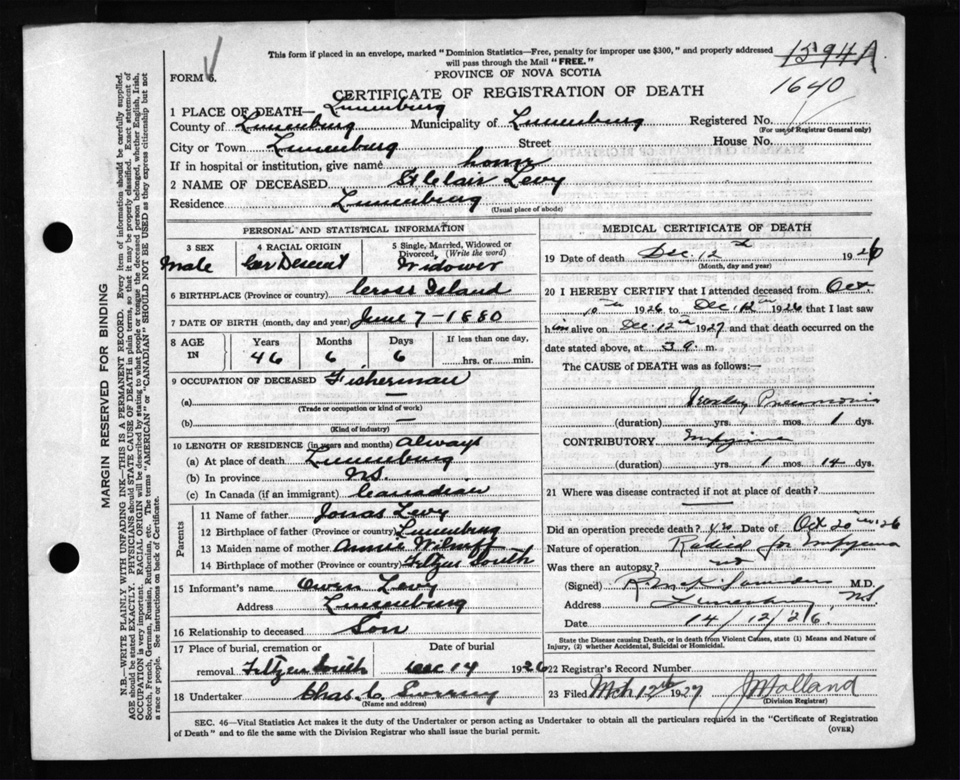 This form if placed in an envelope, marked "Dominion Statistics—Free, penalty for improper use $300," and properly addressed
will pass through the Mail "FREE."
1594A
FORM 6.
PROVINCE OF NOVA SCOTIA
CERTIFICATE OF REGISTRATION OF DEATH
1640
1 PLACE OF DEATH— Lunenburg
County of Lunenburg Municipality of Lunenburg Registered No.
(For use of Registrar General only)
City or Town Lunenburg Street House No.
If in hospital or institution, give name home
2 NAME OF DECEASED StClair Levy
Residence Lunenburg
(Usual place of abode)
PERSONAL AND STATISTICAL INFORMATION
3 SEX 4 RACIAL ORIGIN 5 Single, Married, Widowed or
Divorced, (Write the word)
Male Ger Descent Widower
6 BIRTHPLACE (Province or country) Cross Island
7 DATE OF BIRTH (month, day and year) June 7-1880
8 AGE IN Years Months Days If less than one day,
46 6 6 hrs. or min.
9 OCCUPATION OF DECEASED Fisherman
(a) —
(Trade or occupation or kind of work)
(b) —
(Kind of industry)
10 LENGTH OF RESIDENCE (in years and months) always
(a) At place of death Lunenburg
(b) In province NS.
(c) In Canada (if an immigrant) Canadian
Parents
11 Name of father Jonas Levy
12 Birthplace of father (Province or country) Lunenburg
13 Maiden name of mother Annie
14 Birthplace of mother (Province or country) Feltzen South
15 Informant's name Owen Levy
Address Lunenburg
16 Relationship to deceased Son
17 Place of burial, cremation or Date of burial
removal Feltzen South Dec 14 1926
18 Undertaker Chas. C.
(Name and address)
MEDICAL CERTIFICATE OF DEATH
19 Date of death Dec. 12 1926
(Month, day and year)
20 I HEREBY CERTIFY that I attended deceased from Oct.
10th 1926 to Dec. 12th 1926 that I last saw
him alive on Dec. 12th 1927 and that death occurred on
date stated above, at 3 a. m.
The CAUSE of DEATH was as follows:—
Pneumonia
(duration) yrs. 1 mos. dys.
CONTRIBUTORY Empyema
(duration) yrs. 1 mos. 14 dys.
21 Where was disease contracted if not at place of death?
—
Did an operation precede death? yes Date of Oct 20th 1926
Nature of operation Radical for Empyema
Was there an autopsy? no
(Signed) M.D.
Address Lunenburg NS.
Date 14/12/26.
State the Disease causing Death, or in death from Violent Causes, state (1) Means and Nature of
Injury, (2) whether Accidental, Suicidal or Homicidal.
22 Registrar's Record Number
23 Filed Mch 12th 1927
(Division Registrar)
SEC. 46—Vital Statistics Act makes it the duty of the Undertaker or person acting as Undertaker to obtain all the particulars required in the "Certificate of Registration
of Death" and to file the same with the Division Registrar who shall issue the burial permit.
(OVER)
MARGIN RESERVED FOR BINDING
N.B.—WRITE PLAINLY WITH UNFADING INK—THIS IS A PERMANENT RECORD. Every item of information should be carefully supplied.
AGE should be stated EXACTLY. PHYSICIANS should STATE CAUSE OF DEATH in plain terms, so that it may be properly classified. Exact statement of
OCCUPATION is very important. RACIAL ORIGIN will be described by stating to what people or tongue the deceased person belonged, whether English, Irish,
Scotch, French, German, Russian, Ruthenian, etc. The terms "AMERICAN" or "CANADIAN" SHOULD NOT BE USED as they express citizenship but not
a race or people. See instructions on back of Certificate.